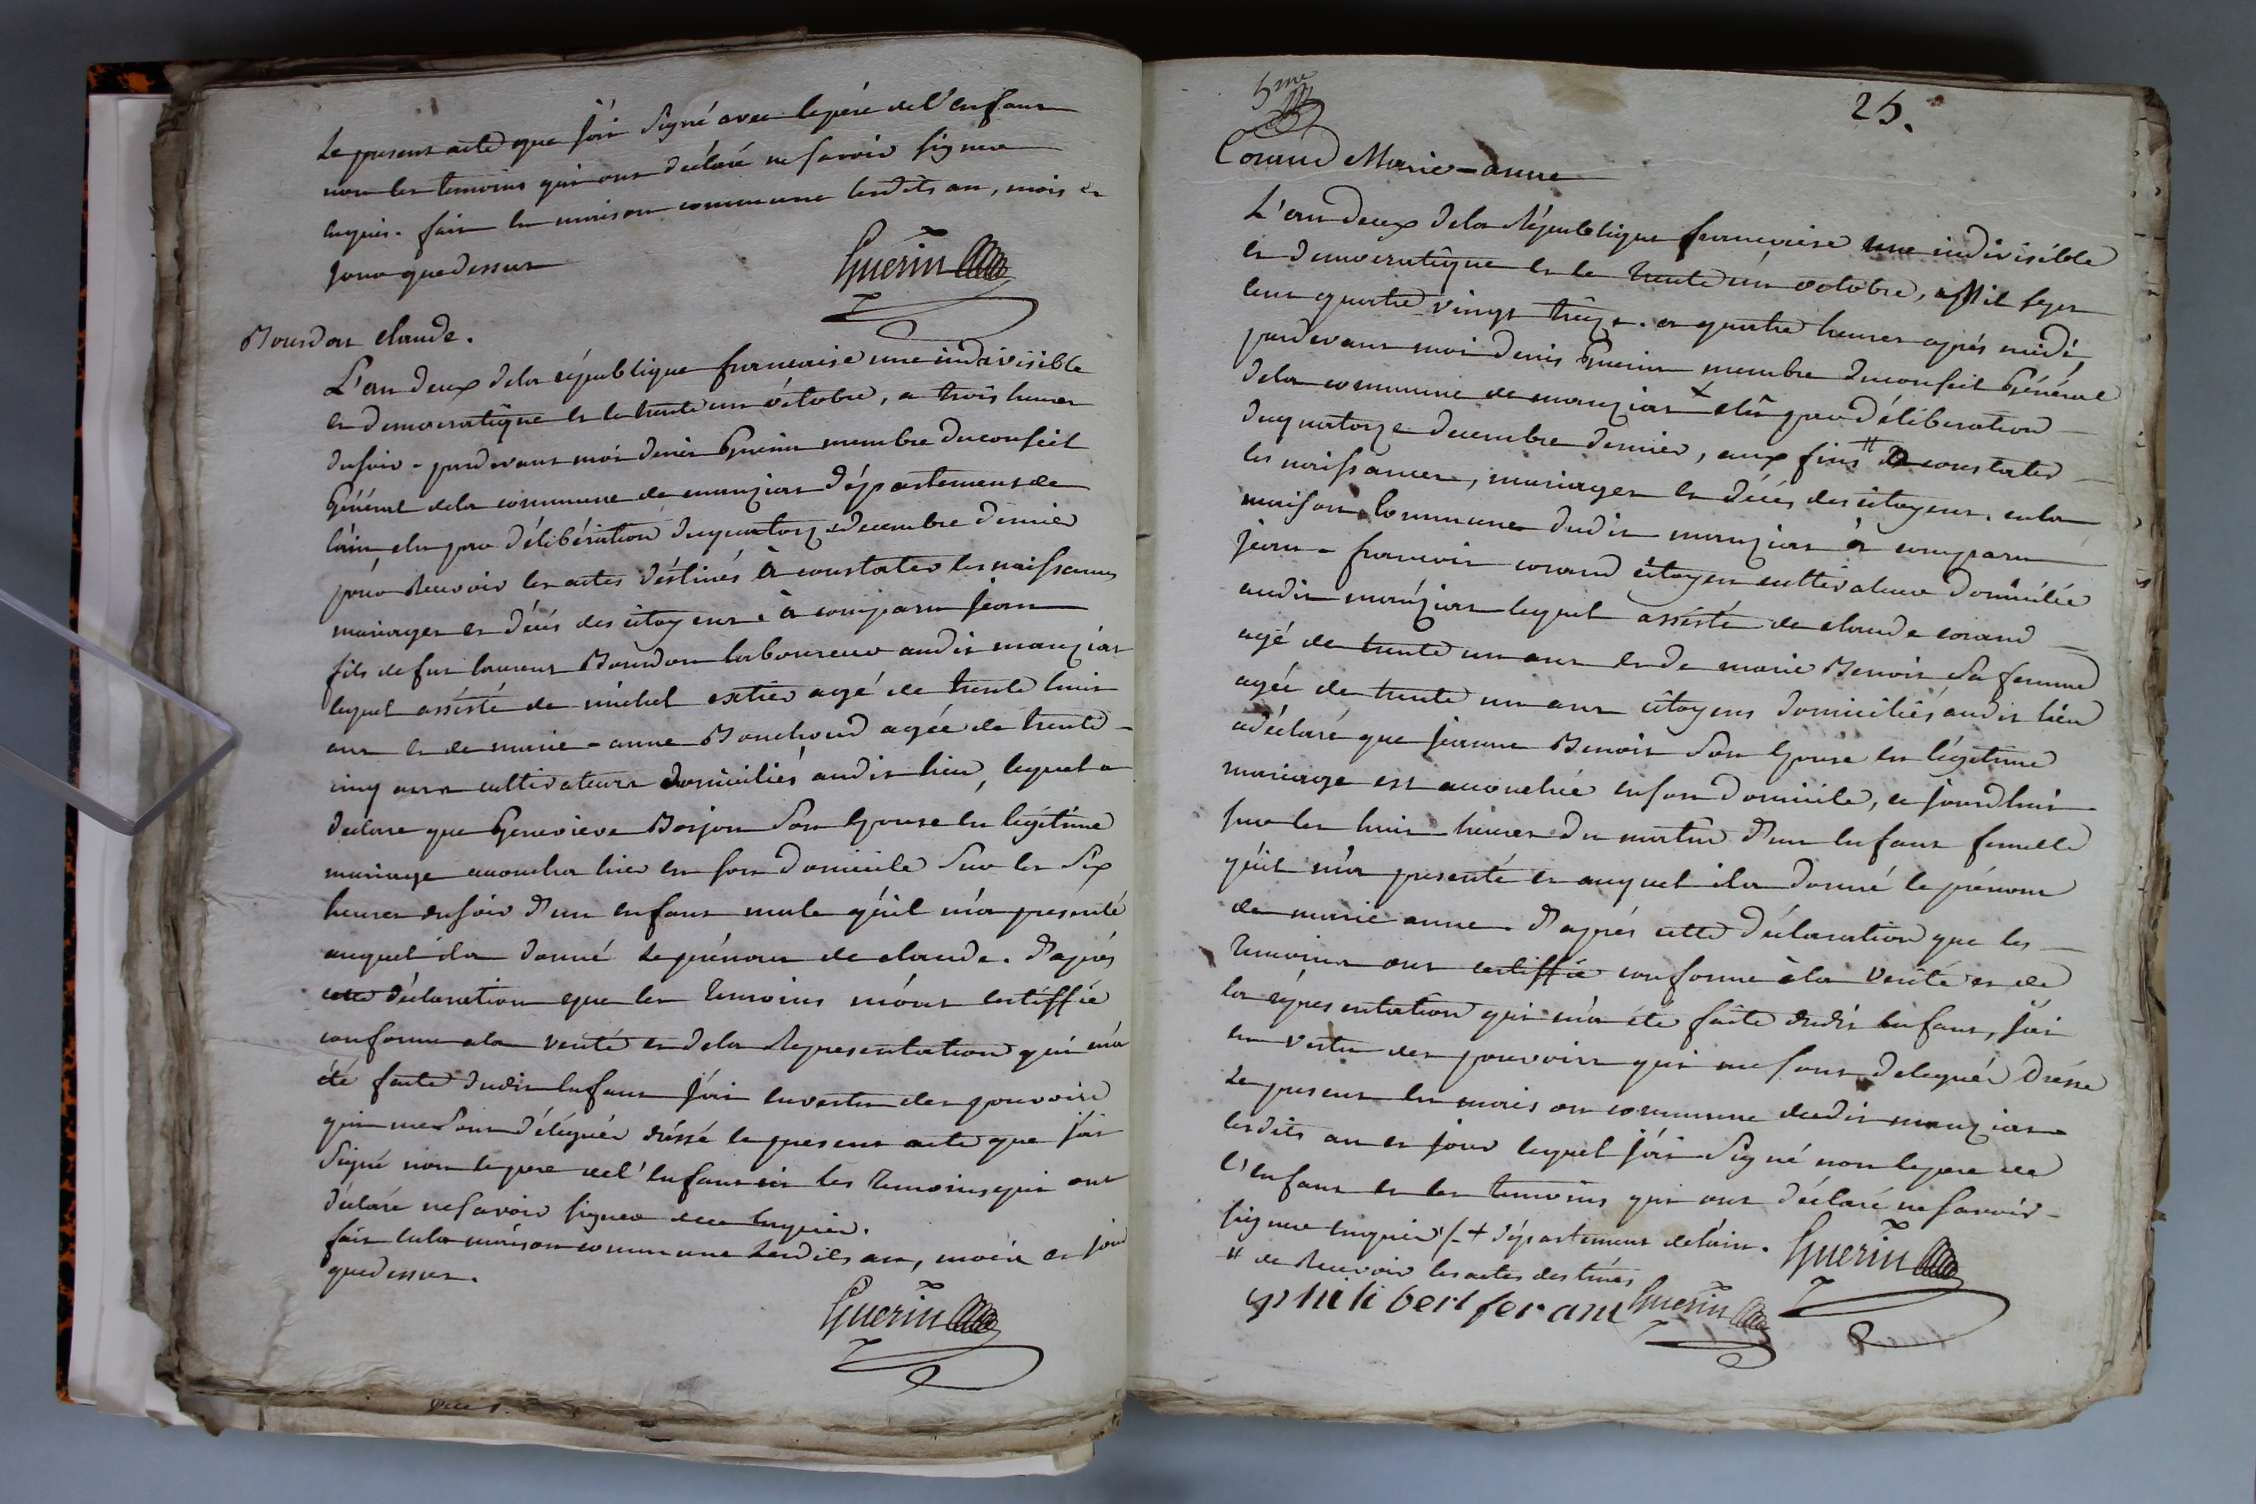 Le present acte que j'ai signé avec le pére de l'enfant
non les temoins qui ont déclaré ne savoir signer
enquis. fait en maison commune lesdits an, mois et
jour que dessus
Guerin
Bourdon claude.
L'an deux dela république francaise une indivisible
et democratique et le trente un octobre, a trois heures
du soir. pardevant moi denis Guerin membre du conseil
Général dela commune de manziat département de
l'ain, elu par délibération du quatorze decembre dernier
pour Recevoir les actes déstinés à constater les naissances
mariages et décés des citoyens. à comparu jean
fils de feu laurent Bourdon laboureur audit manziat
lequel assisté de michel extier agé de trente huit
ans et de marie-anne Bouchoud agée de trente
cinq ans cultivateurs domiciliés audit lieu, lequel a
déclare que Genevieve Borjon son Epouse en légitime
mariage accoucha hier en son domicile sur les six
heures du soir d'un enfant male qu'il m'a presenté
auquel il a donné le prénom de claude. d'aprés
cette déclaration que les temoins m'ont certiffié
conforme a la verité et dela Representation qui m'a
été faite dudit enfant j'ai en vertu des pouvoirs
qui me sont délégués dréssé le present acte que j'ai
signé non le pere de l'enfant ni les temoins qui ont
déclaré ne savoir signer de ce enquis.
fait en la maison commune lesdits an, mois et jour
que dessus.
Guerin
5me
25.
Corand Marie-anne
L'an deux dela République francaise une indivisible
et democratique et le trente un octobre, mil sept
cent quatre vingt treize. a quatre heures aprés midi,
pardevant moi denis Guerin membre du conseil Général
dela commune de manziat + elû par délibération
du quatorze decembre dernier, aux fins # constater
les naissances, mariages et décés des citoyens. en la
maison commune dudit manziat à comparu
jean-francois corand citoyen cultivateur domicilié
audit manziat lequel assisté de claude corand
agé de trente un ans et de marie Benoit sa femme
agée de trente un ans citoyens domiciliés audit lieu
a déclaré que jeanne Benoit son Epouse en légitime
mariage est accouchée en son domicile, ce jourd'hui
sur les huit heures du matin d'un enfant femelle
qu'il m'a presenté et auquel il a donné le prénom
de marie anne. d'aprés cette déclaration que les
temoins ont certiffié conforme à la verité et de
la répresentation qui m'a été faite dudit enfant, j'ai
en vertu des pouvoirs qui me sont delegués dréssé
le present en maison commune dudit manziat
lesdits an et jour lequel j'ai signé non le pere de
l'enfant et les temoins qui ont déclaré ne savoir
signer enquis /. + département de l'ain.
# de Recevoir les actes destinés
Guerin
philibert feram Guerin